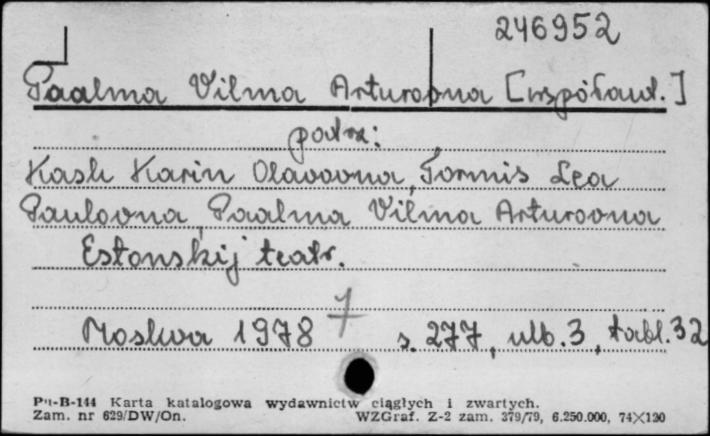 246952
Paalma Vilma Arturovna [współaut.]
patrz:
Kask Karin Olavovna, Tormis Lea
Paulovna, Paalma Vilma Arturovna
Estonskij teatr.
Moskva 1978 s. 277, nlb. 3, tabl. 32
Pu-B-144 Karta katalogowa wydawnictw ciągłych i zwartych.
Zam. nr 629/DW/On. WZGraf. Z-2 zam. 379/79, 6.250.000, 74×120